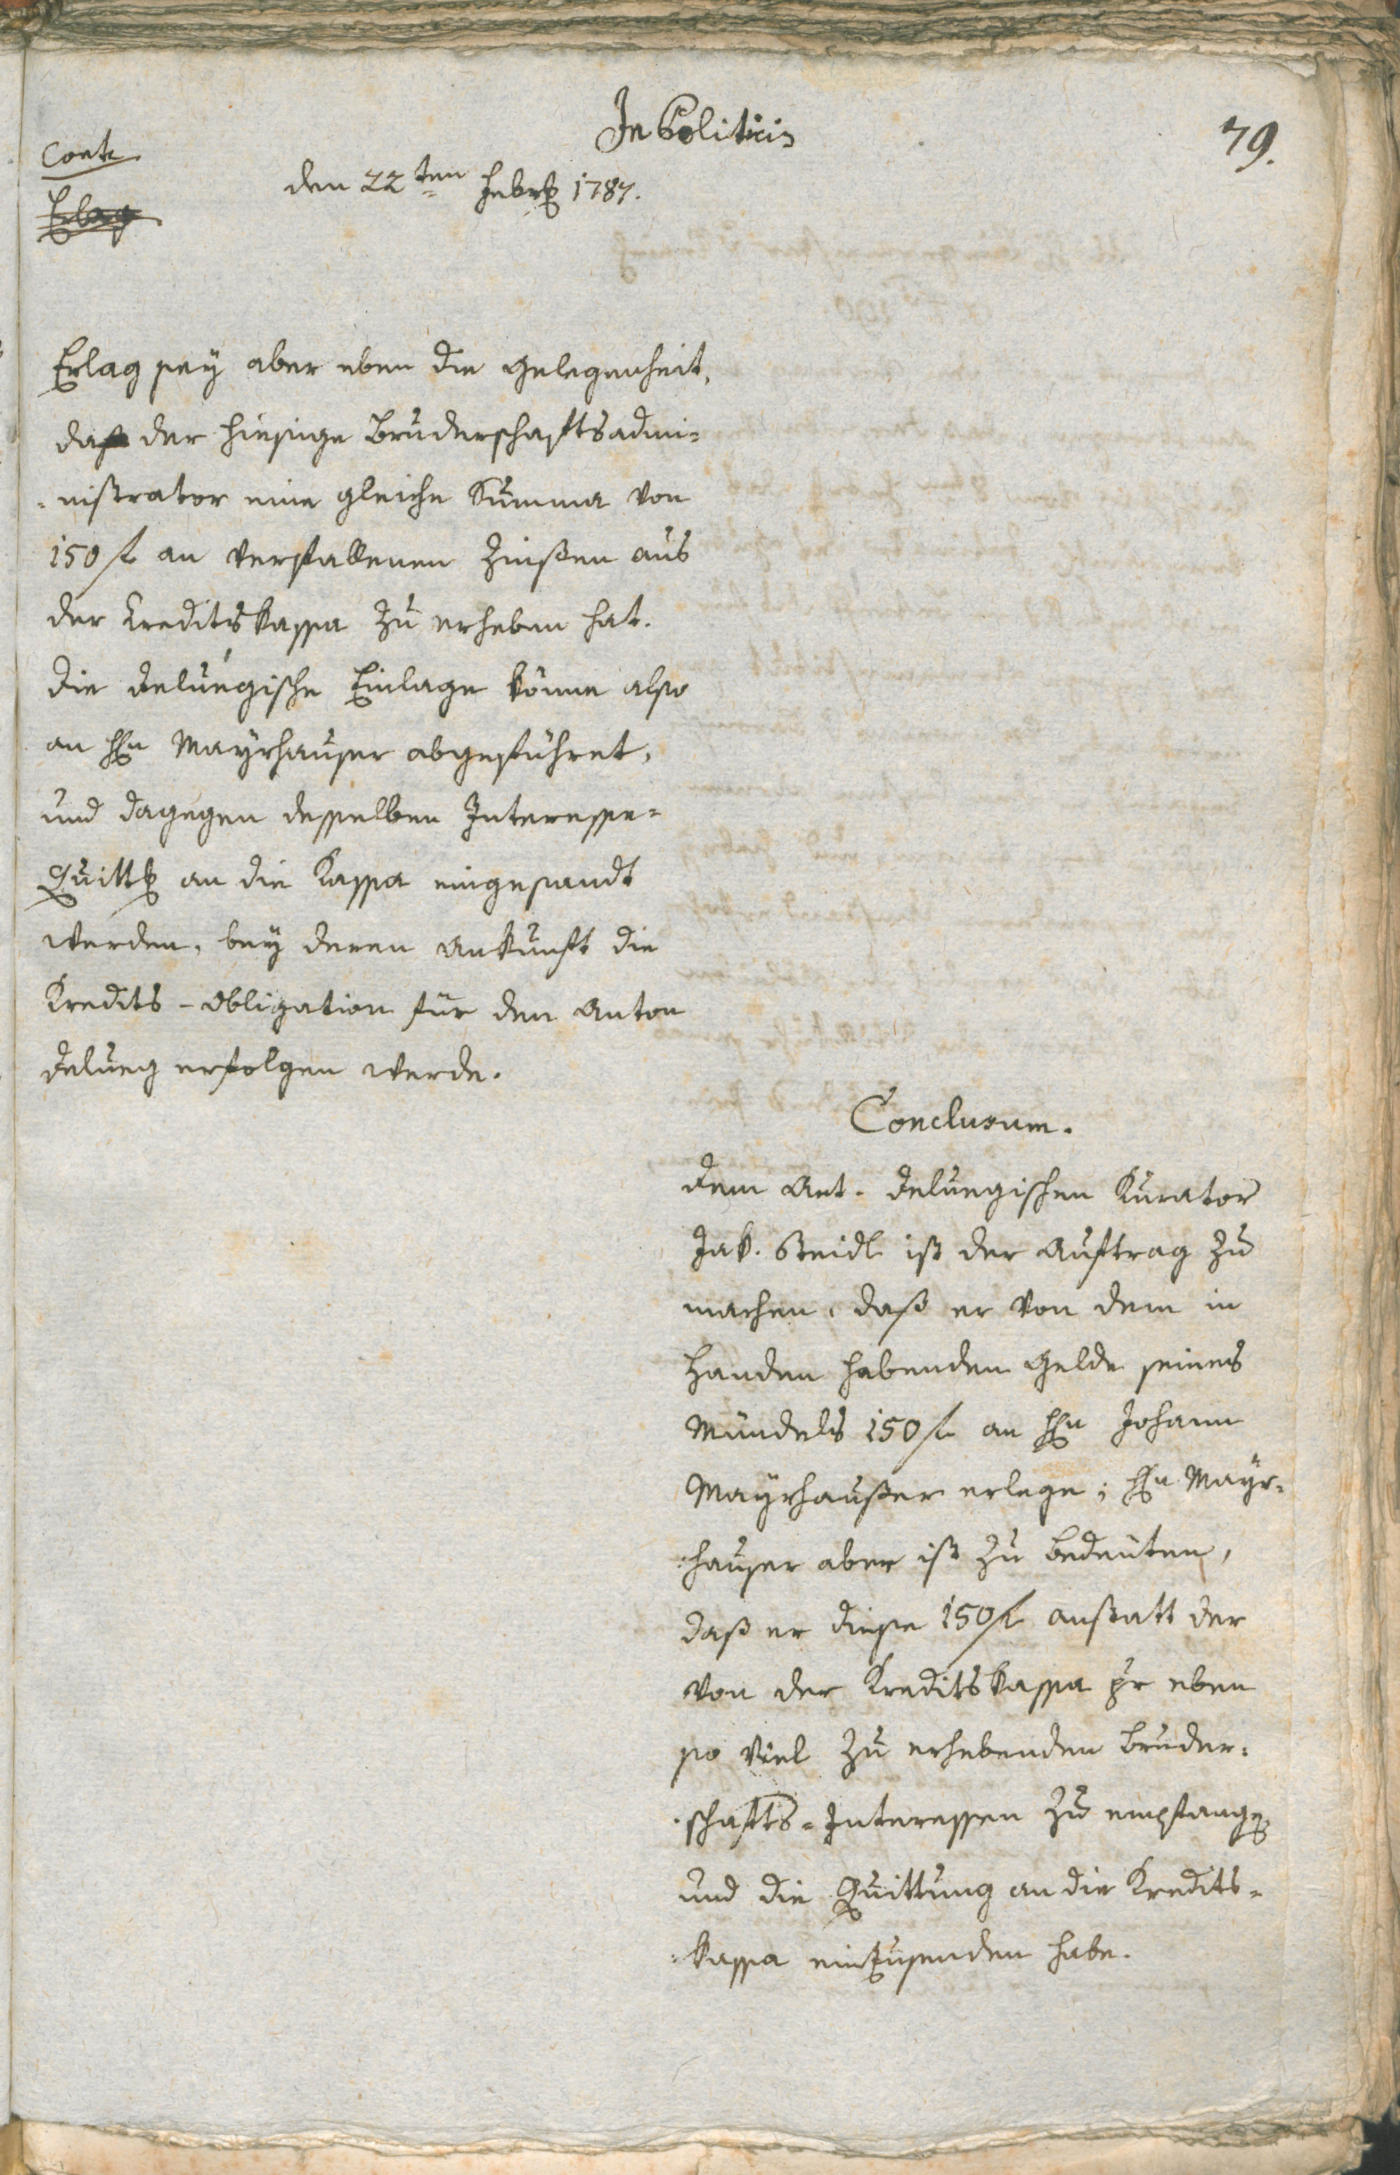 In Politicis
79.
Cont.
den 22ten Febr 1787.
Erlag
Erlag sey aber eben die Gelegenheit,
daß der hiesige Bruderschaftsadmi-
-nistrator eine gleiche Summa von
150 f an verfallenen Zinßen aus
der Kreditskassa zu erheben hat.
die deluegische Einlage könne also
an Hn Mayrhauser abgeführet,
und dagegen desselben Interesse-
Quitt an die Kassa eingesandt
werden, bey deren Ankunft die
Kredits-Obligation für den Anton
Delueg erfolgen werde.
Conclusum.
dem Ant. deluegischen Kurator
Jak. Steidl ist der Auftrag zu
machen, daß er von dem in
Handen habenden Gelde seines
Mündels 150 f an Hn Johann
Mayrhaußer erlege; Hn Mayr-
-hauser aber ist zu bedeuten,
daß er diese 150 f anstatt der
von der Kreditskassa pr eben
so viel zu erhebenden Bruder-
-schafts-Interessen zu empfangen
und die Quittung an die Kredits-
-kassa einzusenden habe.